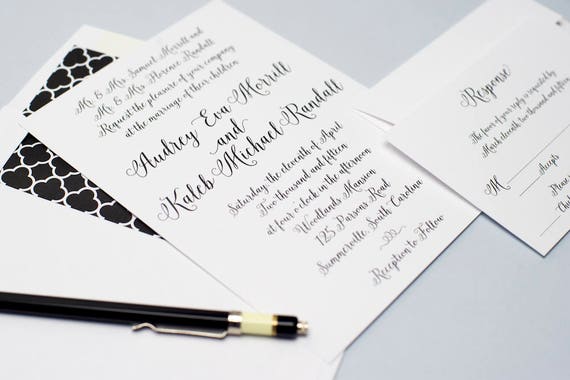 Mr. & Mrs. Samuel Morritt and
Mr. & Mrs. Florence Randall
Request the pleasure of your company
at the marriage of their children
Audrey Eva Morritt
and
Kaleb Michael Randall
Saturday the eleventh of April
Two thousand and fifteen
at four o'clock in the afternoon
Woodlands Mansion
125 Parsons Road
Summerville, South Carolina
Reception to Follow
Response
The favor of your reply is requested by
March eleventh, two thousand and fifteen
M
Accepts
Please